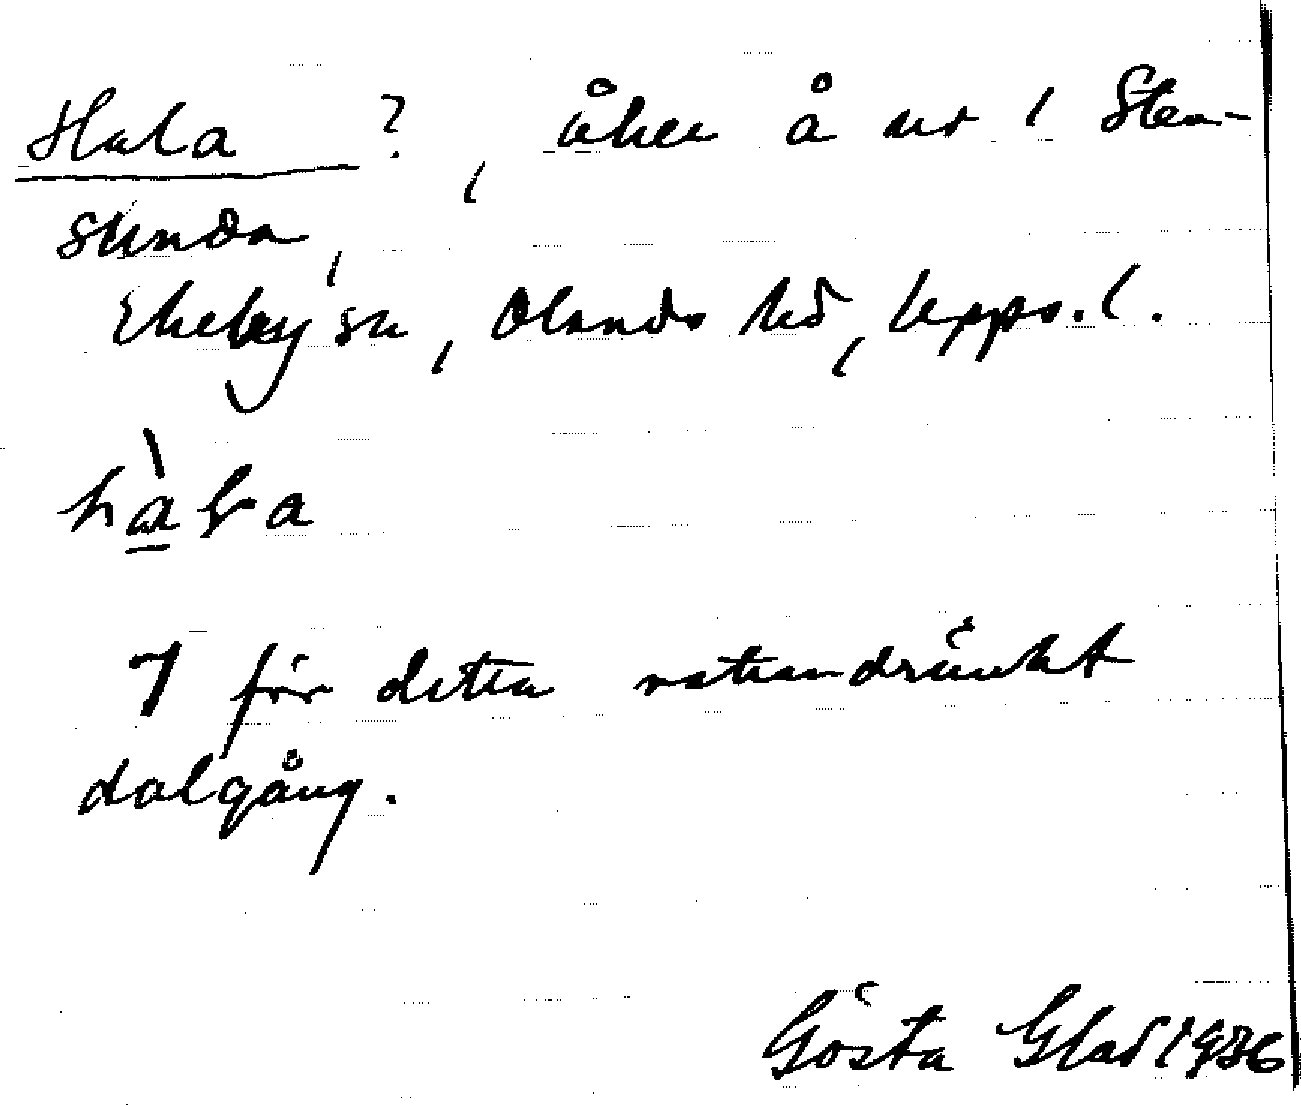 Hala ?, åker å nr 1 Sten-
stunda,
Ekeby sn, Olands hd, Upps. l.
hàla
för detta vattendränkt
dalgång.
Gösta Glad 1936